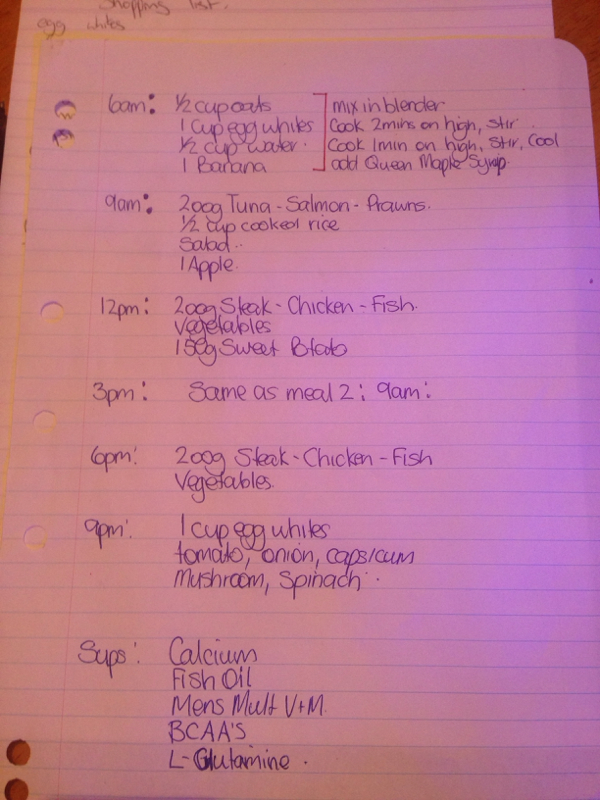 Shopping list.
egg whites
6am: 1/2 cup oats
1 Cup egg whites
1/2 cup water.
1 Banana
mix in blender
Cook 2mins on high, stir.
Cook 1min on high, stir, Cool
add Queen Maple Syrup.
9am: 200g Tuna - Salmon - Prawns.
1/2 cup cooked rice
Salad..
1 Apple.
12pm: 200g Steak - Chicken - Fish.
Vegetables
150g Sweet Potato
3pm: Same as meal 2: 9am:
6pm: 200g Steak - Chicken - Fish
Vegetables.
9pm: 1 cup egg whites
tomato, onion, capsicum
Mushroom, Spinach.
Sups: Calcium
Fish Oil
Mens Mult V+M.
BCAA'S
L-Glutamine.